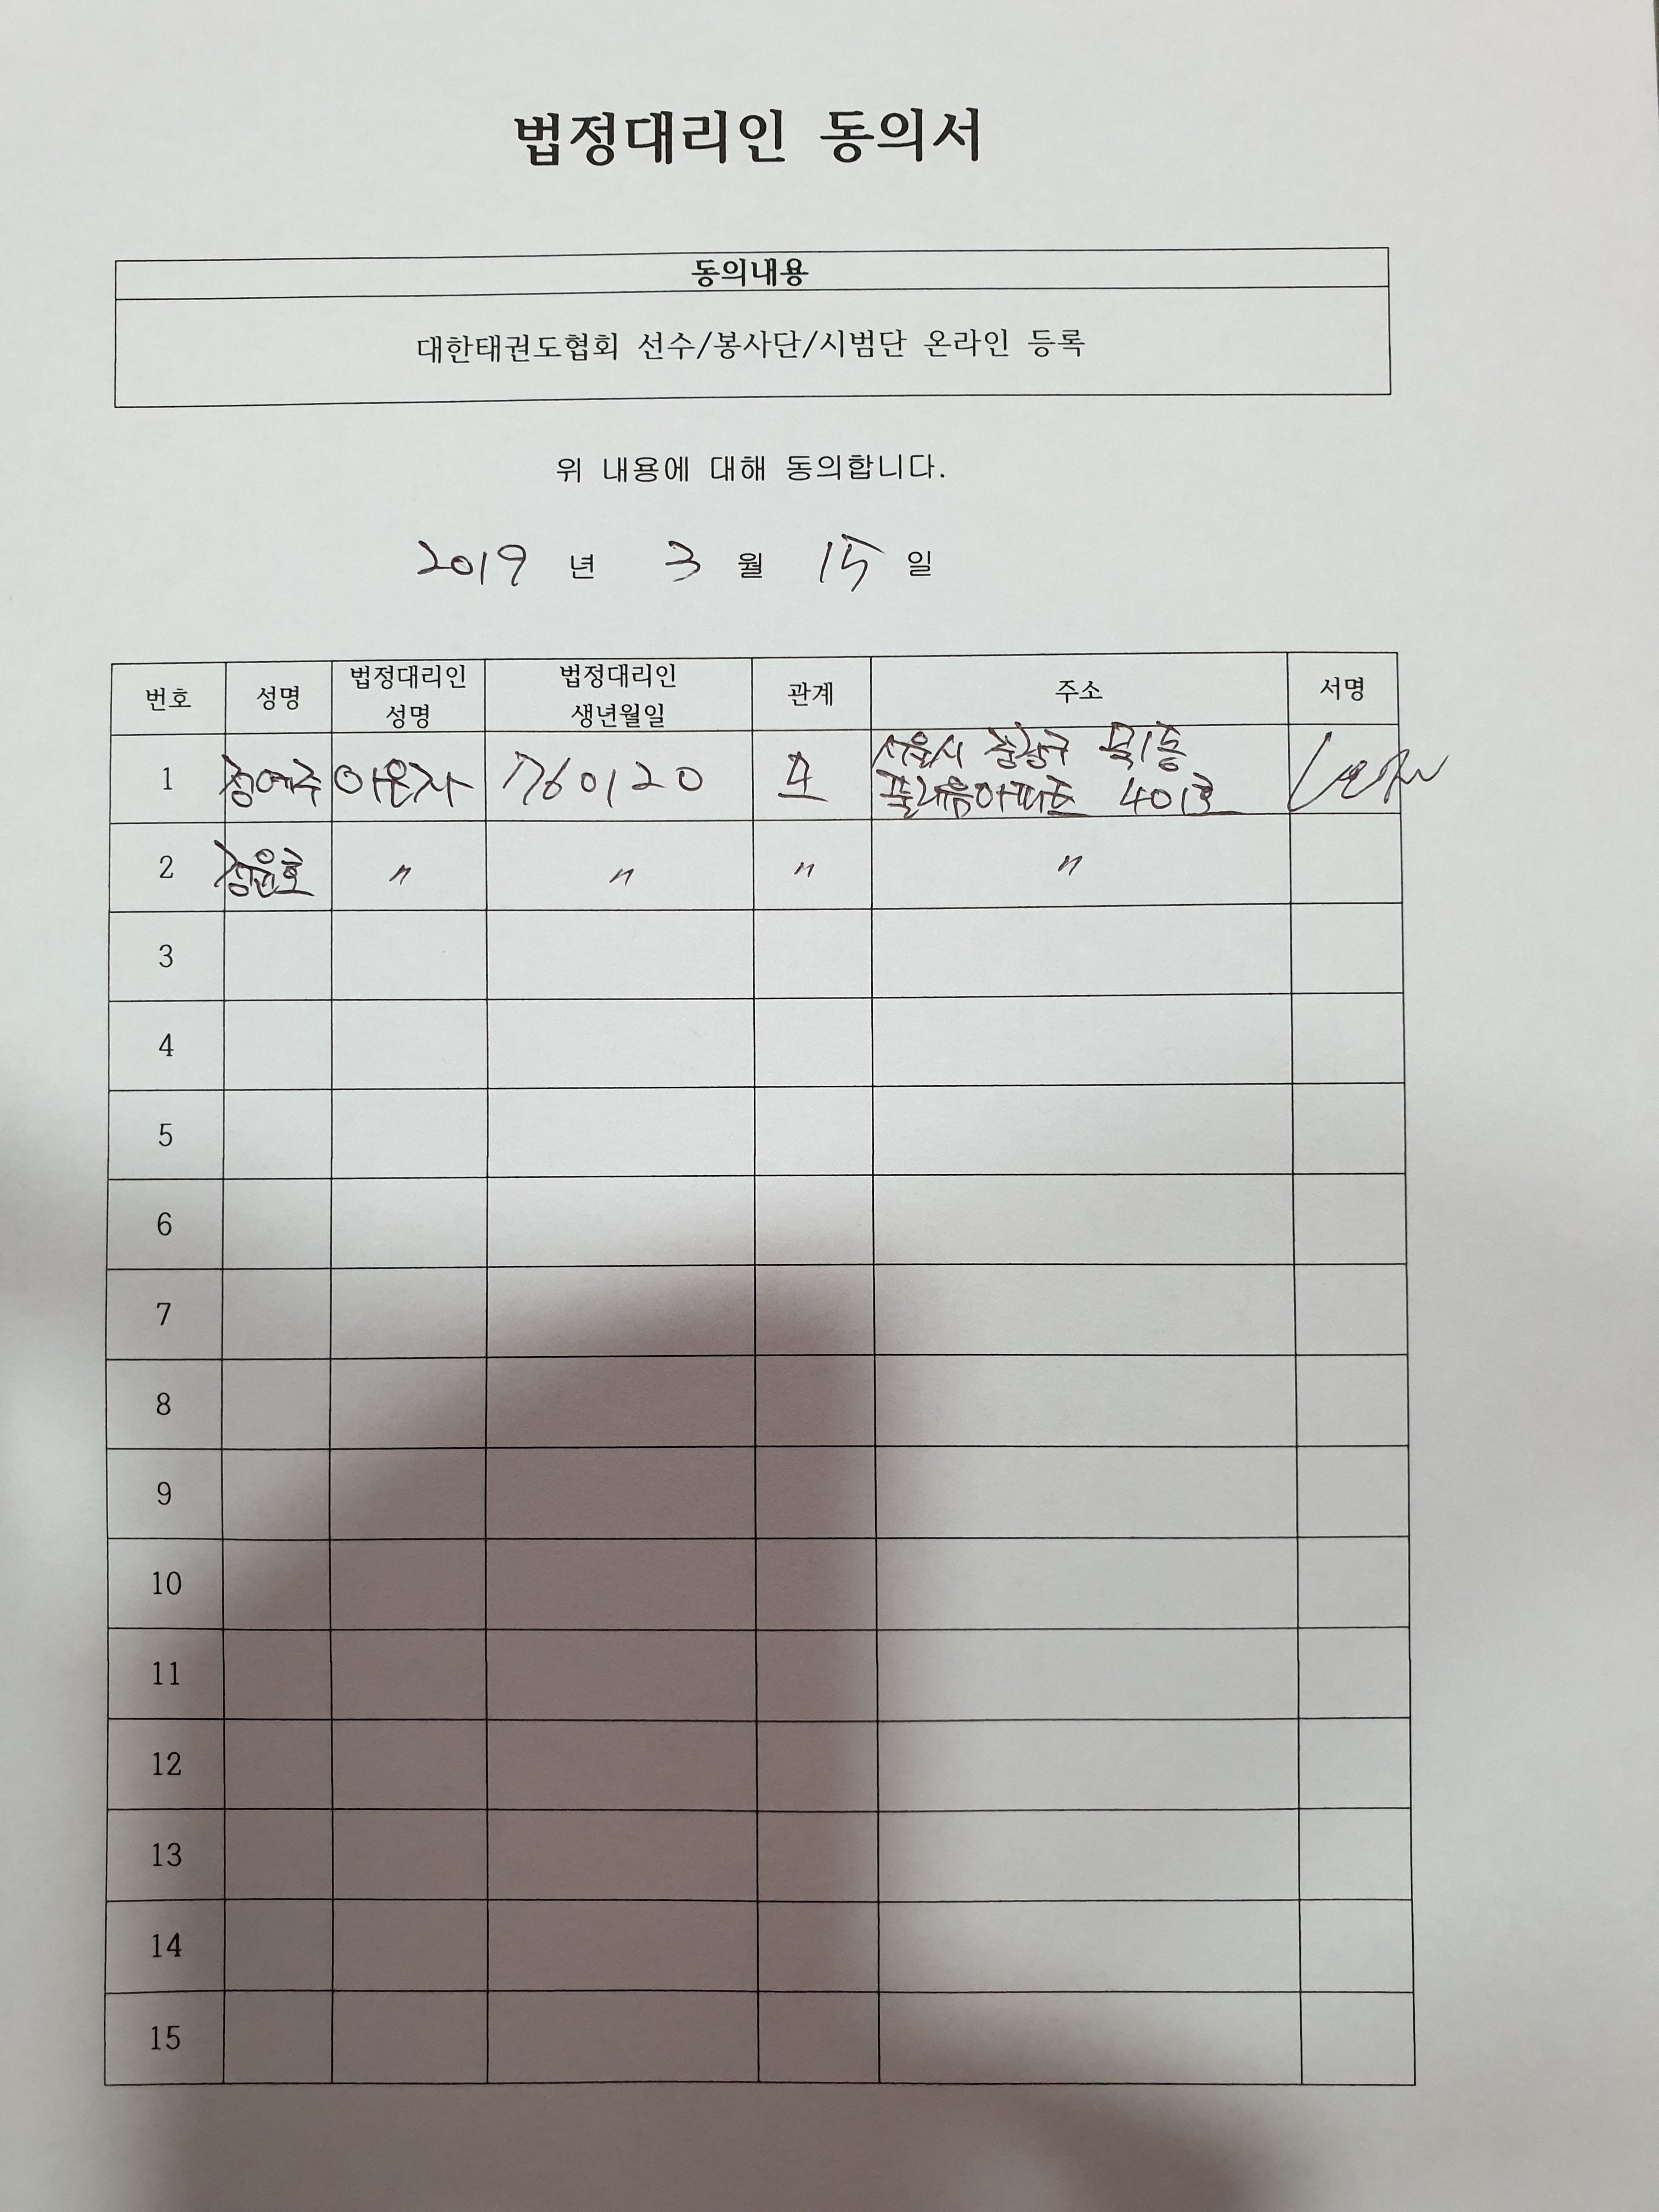 법정대리인 동의서
동의내용
대한태권도협회 선수/봉사단/시범단 온라인 등록
위 내용에 대해 동의합니다.
2019 년 3 월 15 일
번호 성명 법정대리인 성명 법정대리인 생년월일 관계 주소 서명
1 정예주 이은자 760120 모 서울시 중랑구 묵1동
풀래음아파트 401호
2 정윤호 〃 〃 〃 〃
3
4
5
6
7
8
9
10
11
12
13
14
15